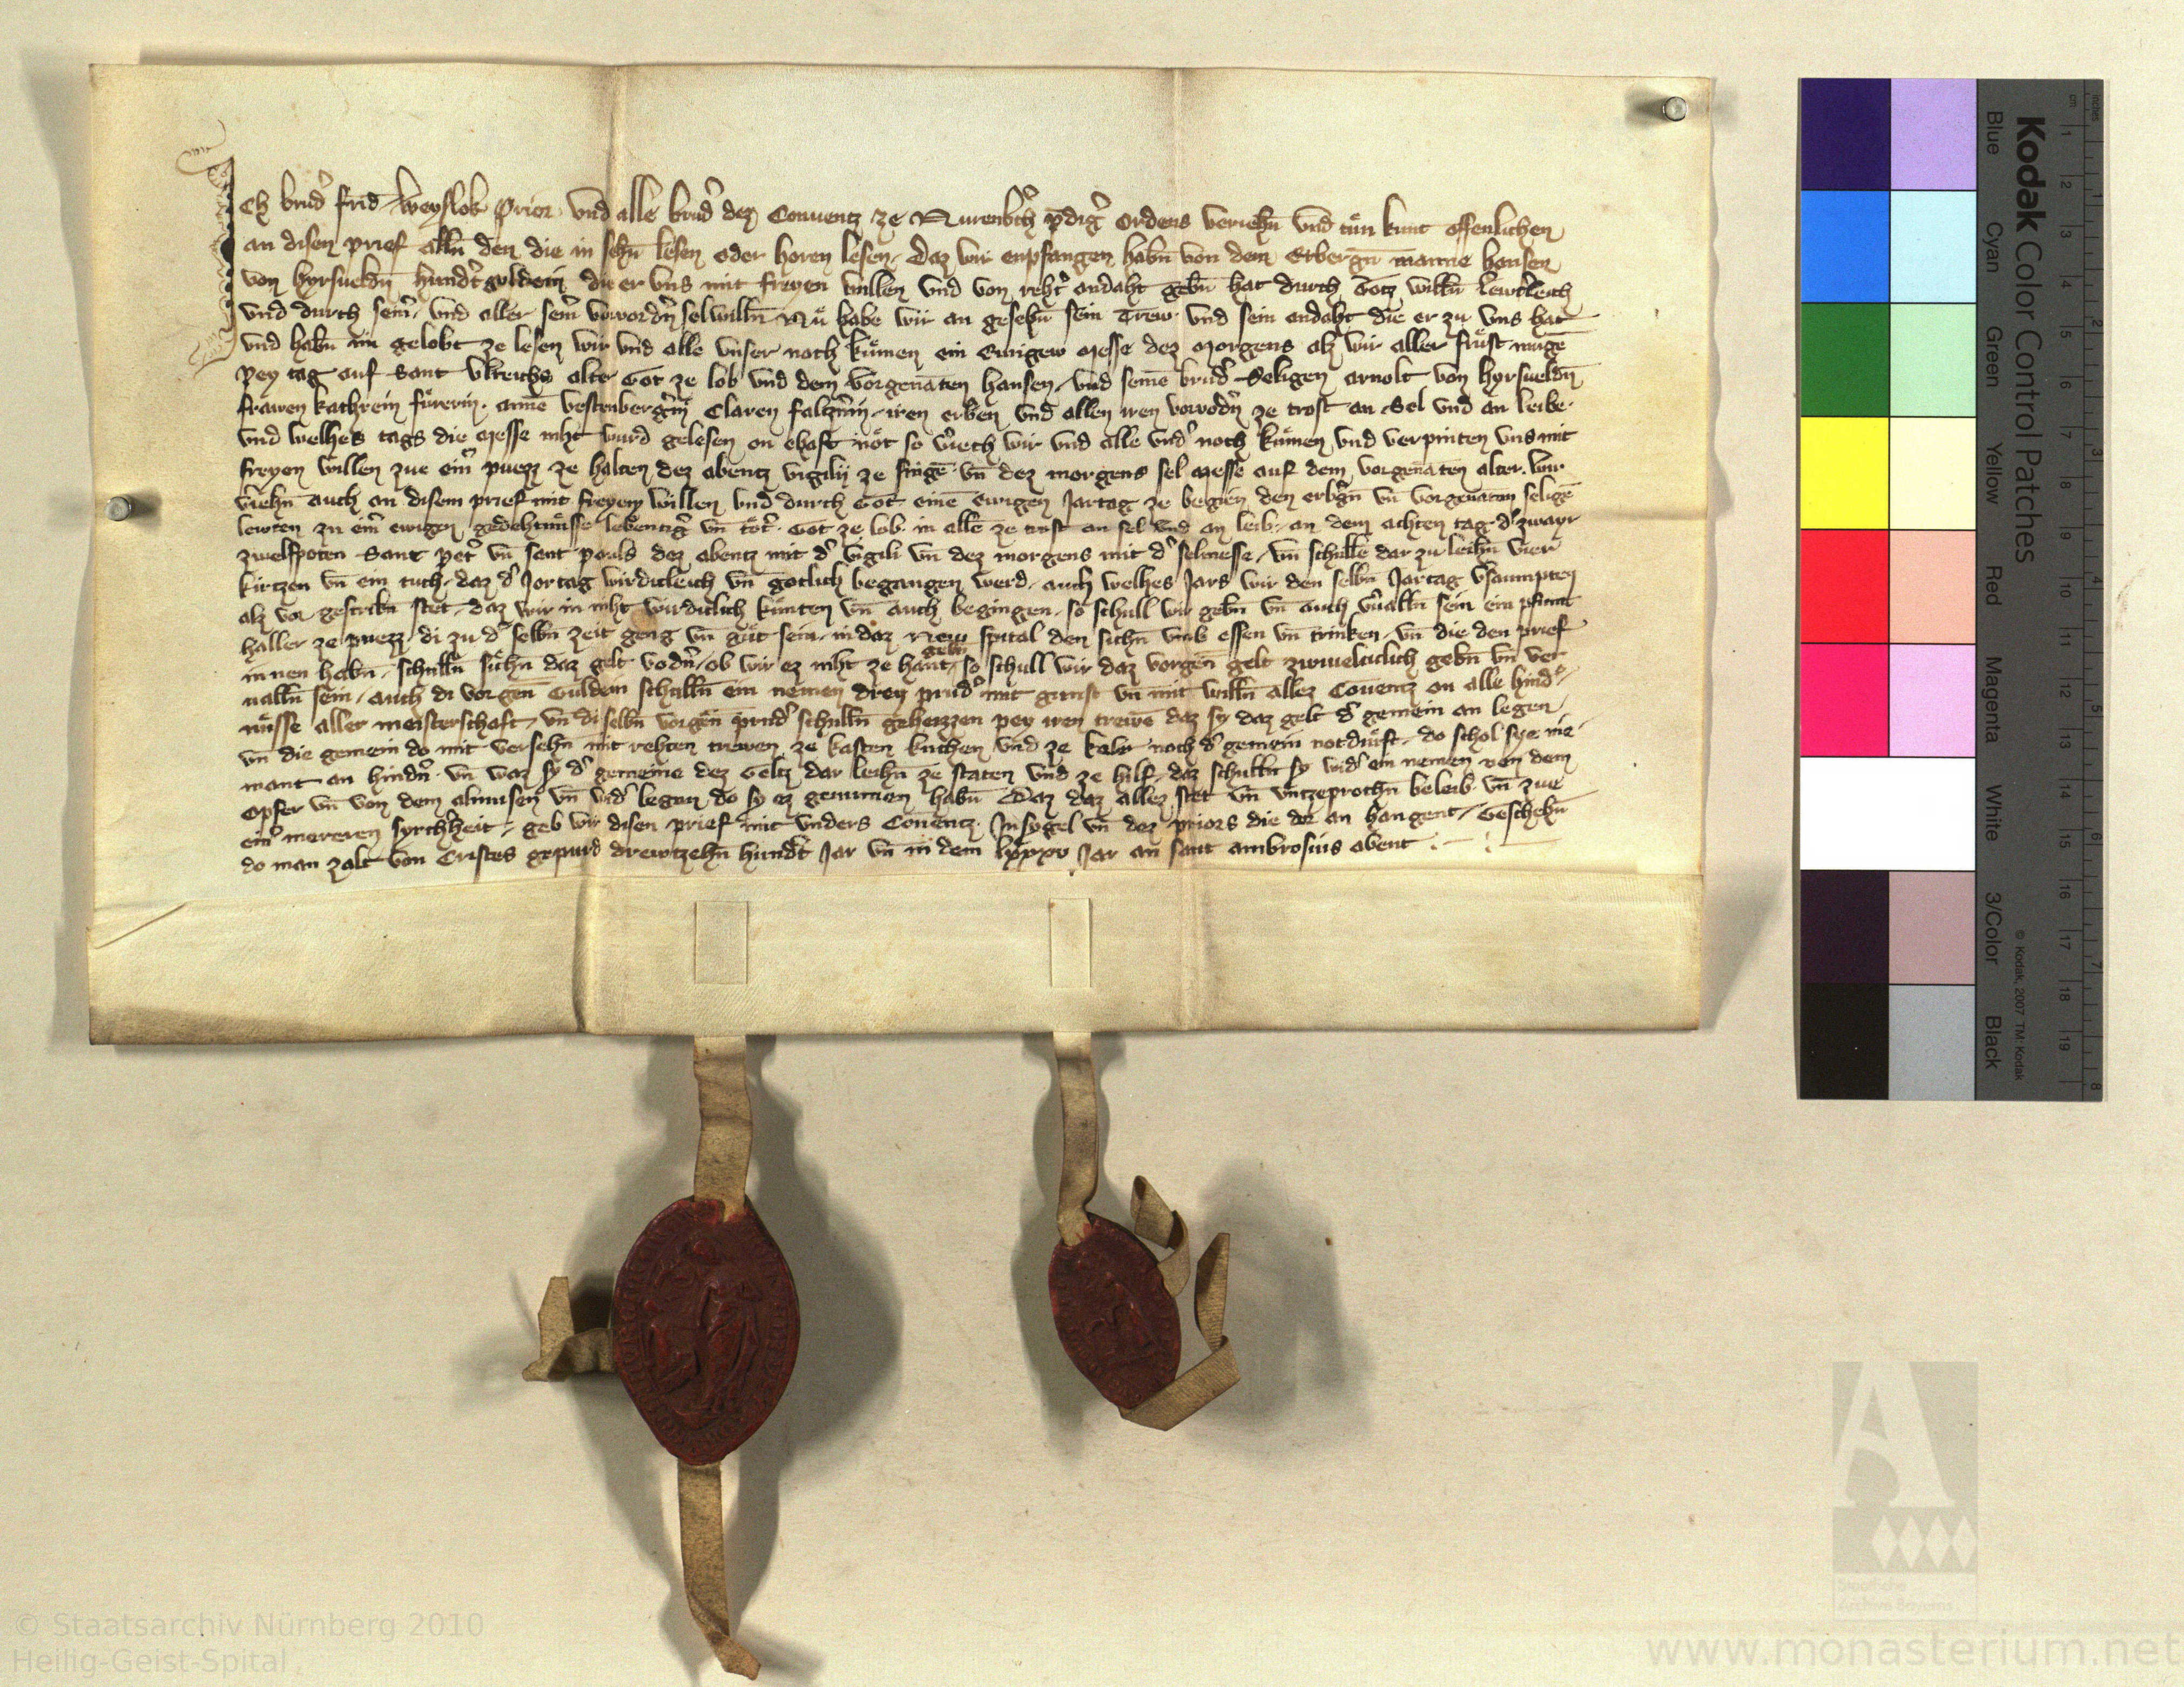 Ich brud' frid. Weyslok Prior und alle brud' dez Conuentz ze Nurenb'ch p̄dig' ordens veriehn̄ vnd tün kunt offenlichen
an disen prief alln̄ den die in sehn̄ lesen oder horen lesen, daz wir enpfangen habn̄ von dem Erbergn̄ manne hansen
von hyrsueldn̄ hund't guldein die er vns mit freyen willen vnd von reht' andaht gebn̄ hat durch Gotz willn̄ lewtleich
vnd durch sein', vnd aller sein' vorvordn̄ selwilln̄ Nü habe wir an gesehn̄ sein Trew vnd sein andaht die er zu vns hat
vnd habn̄ im gelobt ze lesen wir vnd alle vnser noch kümen ein Ewigew Messe dez Morgens alz wir aller früst müge
pey tag auf Sant Vlreichs alter Got ze lob vnd dem vorgenāten hansen, vnd seinē brud' Seligen arnolt von hyrsueldn̄
frawen kathrein fürerin. annē vestenberg'in Claren faltzn'in, iren erben vnd allen iren vorvodn̄ ze trost an Sel vnd an leibe.
vnd welhes tags die Messe niht wurd gelesen on ehaft nöt so v'iech wir vnd alle vnd' noch kümen vnd verpinten vns mit
freyen willen zue ein' puezz ze halten dez abentz vigilij ze singē. vn̄ dez morgens sel Messe auf dem vorgenāten alter. Wir
v'iehn̄ auch an disem prief mit freyem willen vnd durch Got einē ewigen Jartag ze begien den erbgn̄ vn̄ vorgenanten seligē
lewten zu ein' ewigen gedehtnüsse lebentig' vn̄ töt'. Got ze lob. in allē ze trost an sel vnd an leib, an dem achten tag d' zwayr
zwelfpoten Sant pet' vn̄ sant pauls dez abentz mit d' vigili vn̄ dez morgens mit d' selmesse, vn̄ schullē dar zu leihn̄ vier
kirtzen vn̄ ein tuch, daz d' Jartag wirdicleich vn̄ gotlich begangen werd, auch welhes Jars wir den selbn̄ Jartag v'saumpten
alz vor gescribn̄ stet, daz wir in niht wirdiclich künten vn̄ auch begingen, so schull wir gebn̄ vn̄ auch v'ualln̄ sein ein pfunt
haller ze puezz, di zu d' selbn̄ zeit geng vn̄ güt sein, in daz New spital den sichn̄ vmb essen vn̄ trinken, vn̄ die den prief
innen habn̄, schulln̄ süchn̄ daz gelt vodn̄, ob wir ez niht ze hant gebn̄, so schull wir daz vorgen̄ gelt zwiueldiclich gebn̄ vn̄ ver
ualln̄ sein, auch di vorgen̄ Guldein schulln̄ ein nemen drey prüd' mit gunst vn̄ mit willn̄ allez Couentz on alle hind'
nüsse aller meisterschaft, vn̄ di selbn̄ vorgen̄ prud' schulln̄ geheizzen pey iren trewē daz sy daz gelt d' gemein an legen
vn̄ die gemein do mit versehn̄ mit rehten trewen ze kasten kuchen vnd ze kelr noch d' gemein notdürft, do schol sye nie
mant an hindn̄. vn̄ waz sy d' gemeine dez Geltz dar leihn̄ ze staten vnd ze hilf, daz schulln̄ sy wid' ein nemen von dem
opfer vn̄ von dem almusen vn̄ wid' legen do sy ez genumen habn̄ Daz daz allez stet vn̄ vntzeprochn̄ beleib vn̄ zue
ein' mereren sycherheit, geb wir disen prief mit vnders Couentz Insygel vn̄ dez priors die dor an hangent, Geschehn̄
do man zalt von Cristes gepurd drewtzehn̄ hund't Jar vn̄ in dem lxxxv Jar an sant ambrosius abent
Kodak Color Control Patches
Blue Cyan Green Yellow Red Magenta White 3/Color Black
© Kodak, 2007 TM: Kodak
inches 1 2 3 4 5 6 7 8
cm 1 2 3 4 5 6 7 8 9 10 11 12 13 14 15 16 17 18 19
© Staatsarchiv Nürnberg 2010
Heilig-Geist-Spital
Staatliche
Archive Bayerns
www.monasterium.net